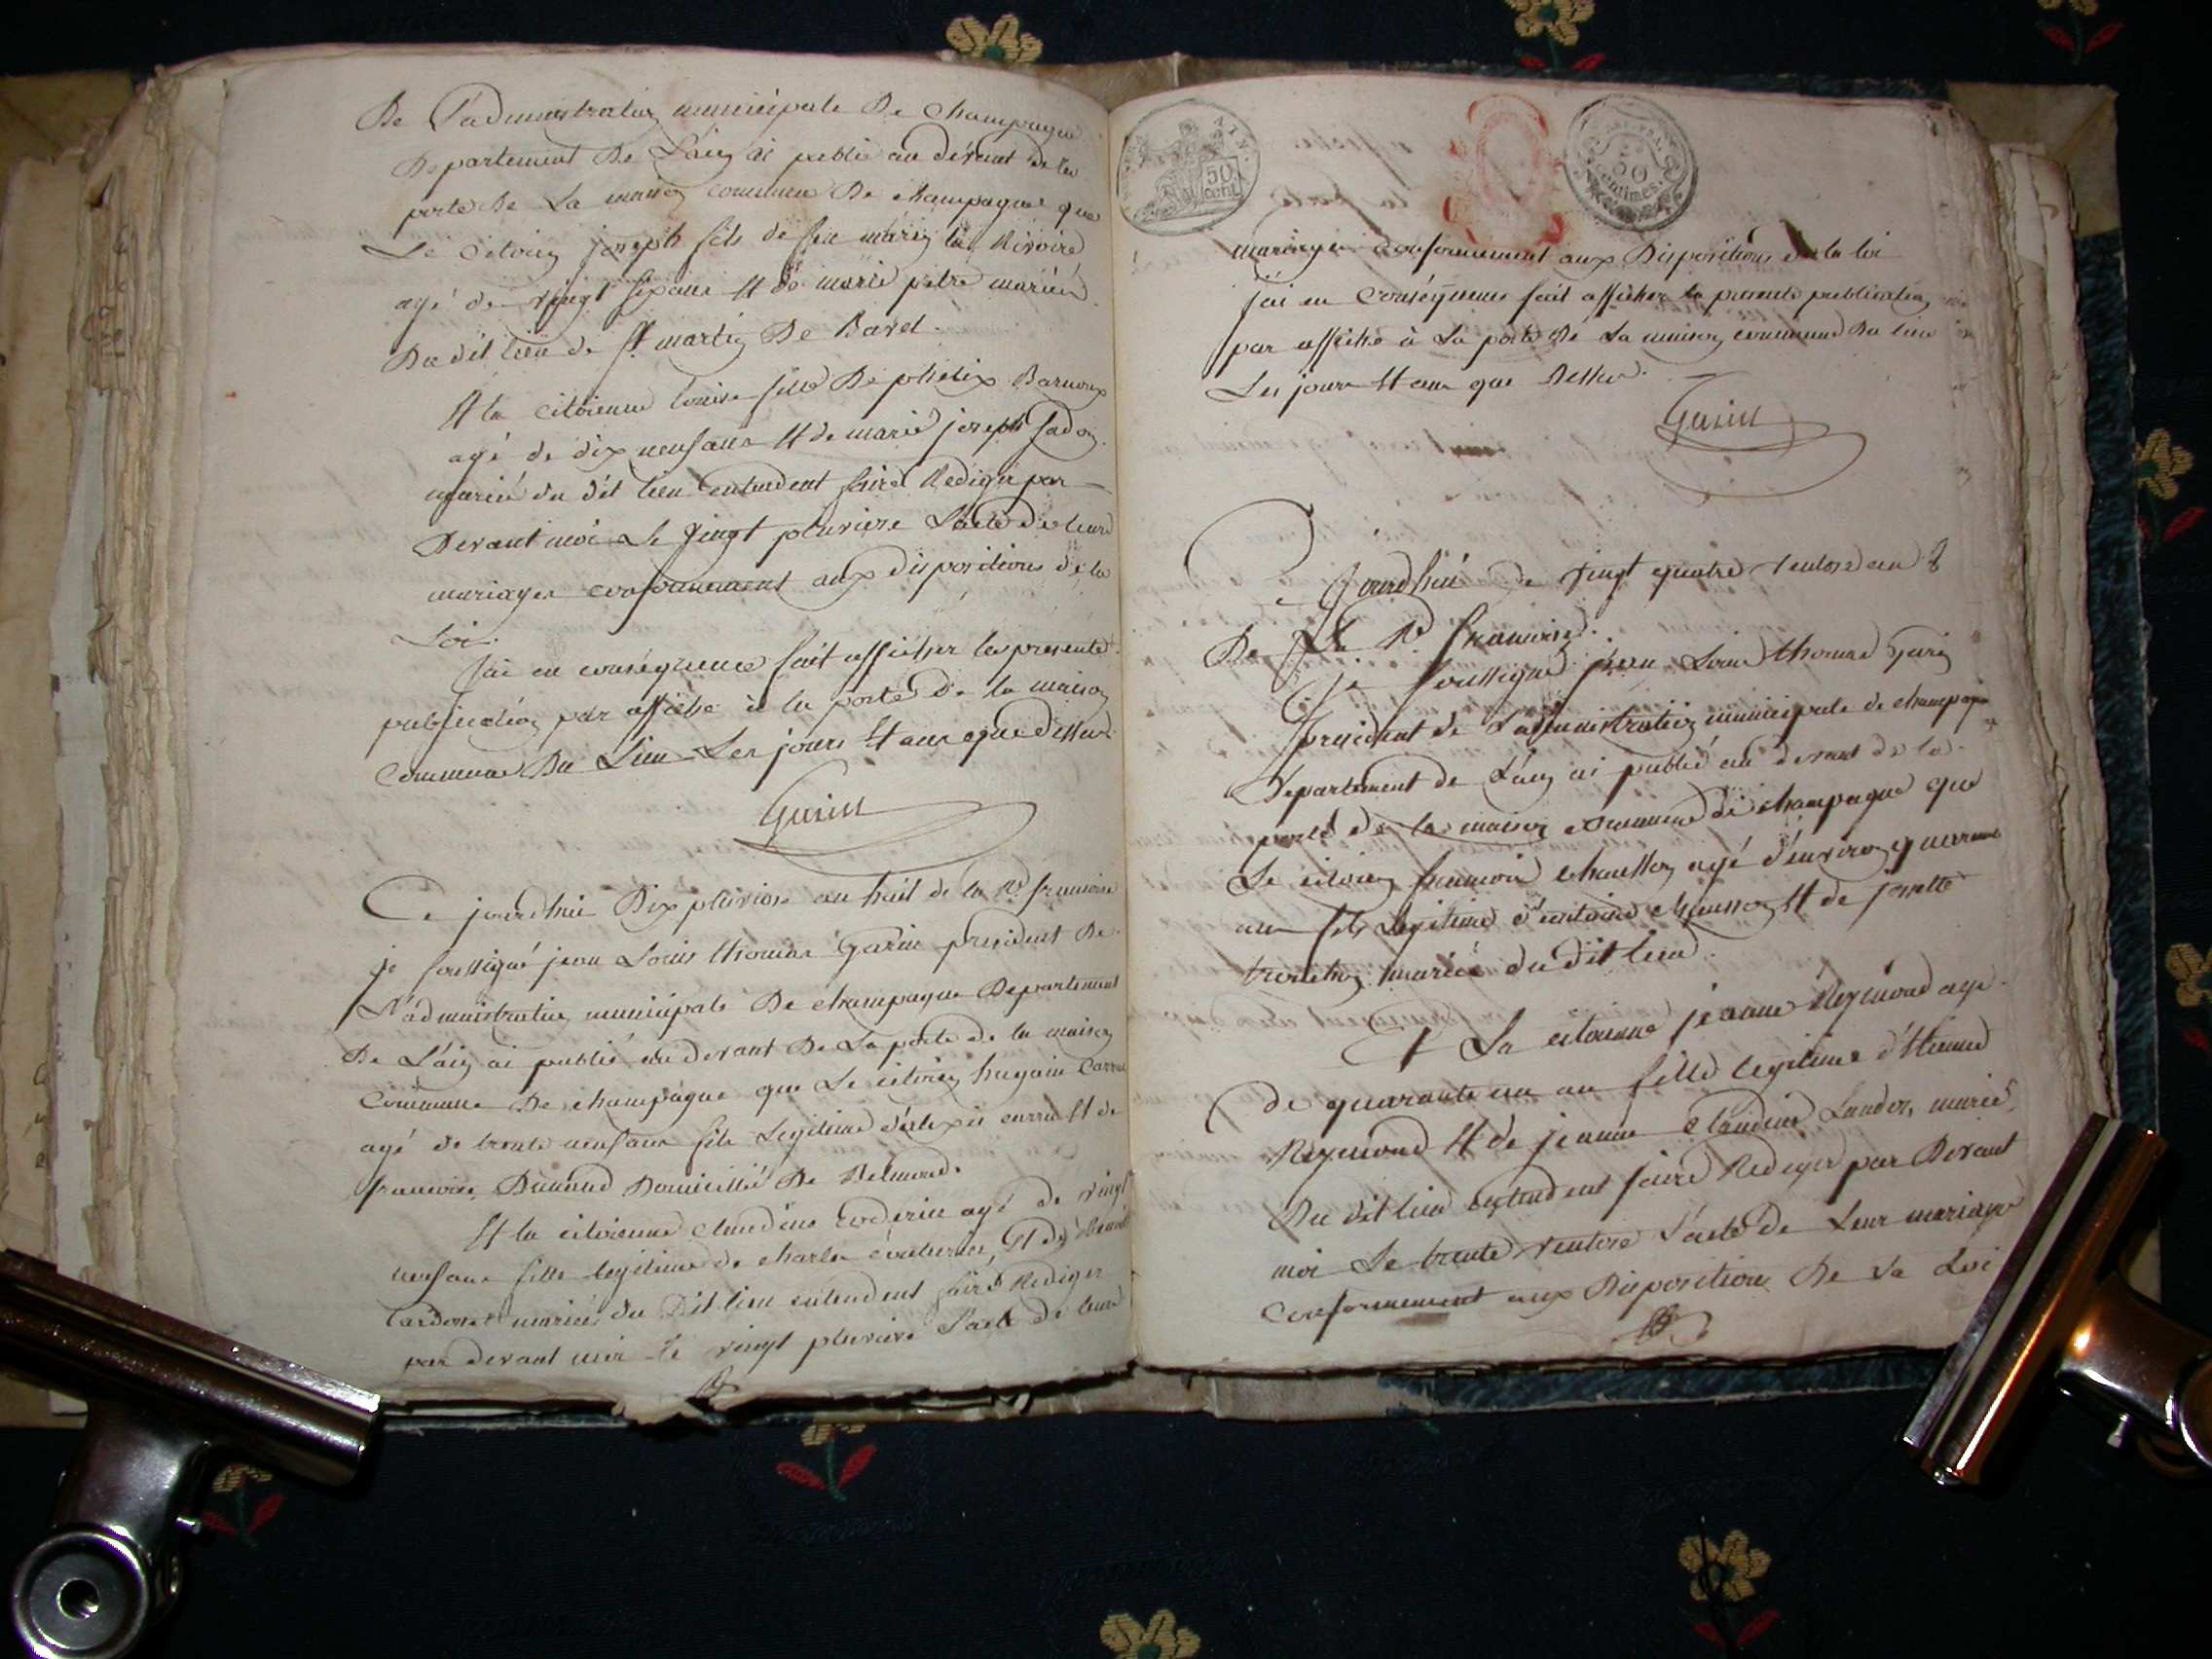 De L'administration municipale De Champagne
Departement De L'ain ai publié au dévant de la
porte De La maison commune De champagne que
Le Citoien joseph fils de feu marin la Rivoire
agé de vingt six ans Et de marie pitre mariéé
Du dit lieu de St martin De Bavel.
Et la citoienne louise fille De phelix Barnoux
agé de dix neuf ans Et de marie joseph
mariée du dit lieu entendent faire Rediger par
Devant moi Le vingt pluviose L'acte de leurs
mariages conformement aux dispositions de la
Loi.
J'ai en conséquence fait afficher la presente
publication par affiche à la porte de la maison
commune Du Lieu Les jours Et an que dessus.
Garin
Ce jourdhui Dix pluviose an huit de la Rd francoise
je soussigné jean Louis thomas Garin president De
L'administration municipale De champagne Departement
De L'ain ai publié au devant De La porte de la maison
Commune De champagne que Le citoien hugain Carrel
agé de trente neuf ans fils Legitime d'alexis carrel Et de
francoise Dunand Domicillié De Belmond.
Et la citoienne claudine agé de vingt
neuf ans fille legitime de charles Et de
mariée du Dit lieu entendent faire Rediger
par devant moi le vingt pluviose L'acte de leur
mariage conformement aux Dispositions de la loi
j'ai en conséquence fait afficher la presente publication
par affiche à La porte De La maison commune Du lieu
Les jours Et an que Dessus.
Garin
Ce jourdhui de vingt quatre ventose an 8
De La Rd francoise.
je soussigné jean Louis thomas garin
president de L'administration municipale de champagne
Departement de L'ain ai publié au devant de la
porte de la maison commune de champagne que
Le citoien francois chausson agé d'environ quarante
ans fils Legitime d'antoine chausson Et de josette
tronchon mariée du dit lieu.
Et La citoienne jeanne Reymond agé
de quarante un an fille legitime d'Etienne
Reymond Et de jeanne claudine Landos, mariée
Du dit lieu entendent faire Rediger par Devant
moi Le trente ventose L'acte de Leur mariage
conformement aux Dispositions De La Loi
50
cent.
50
centimes.